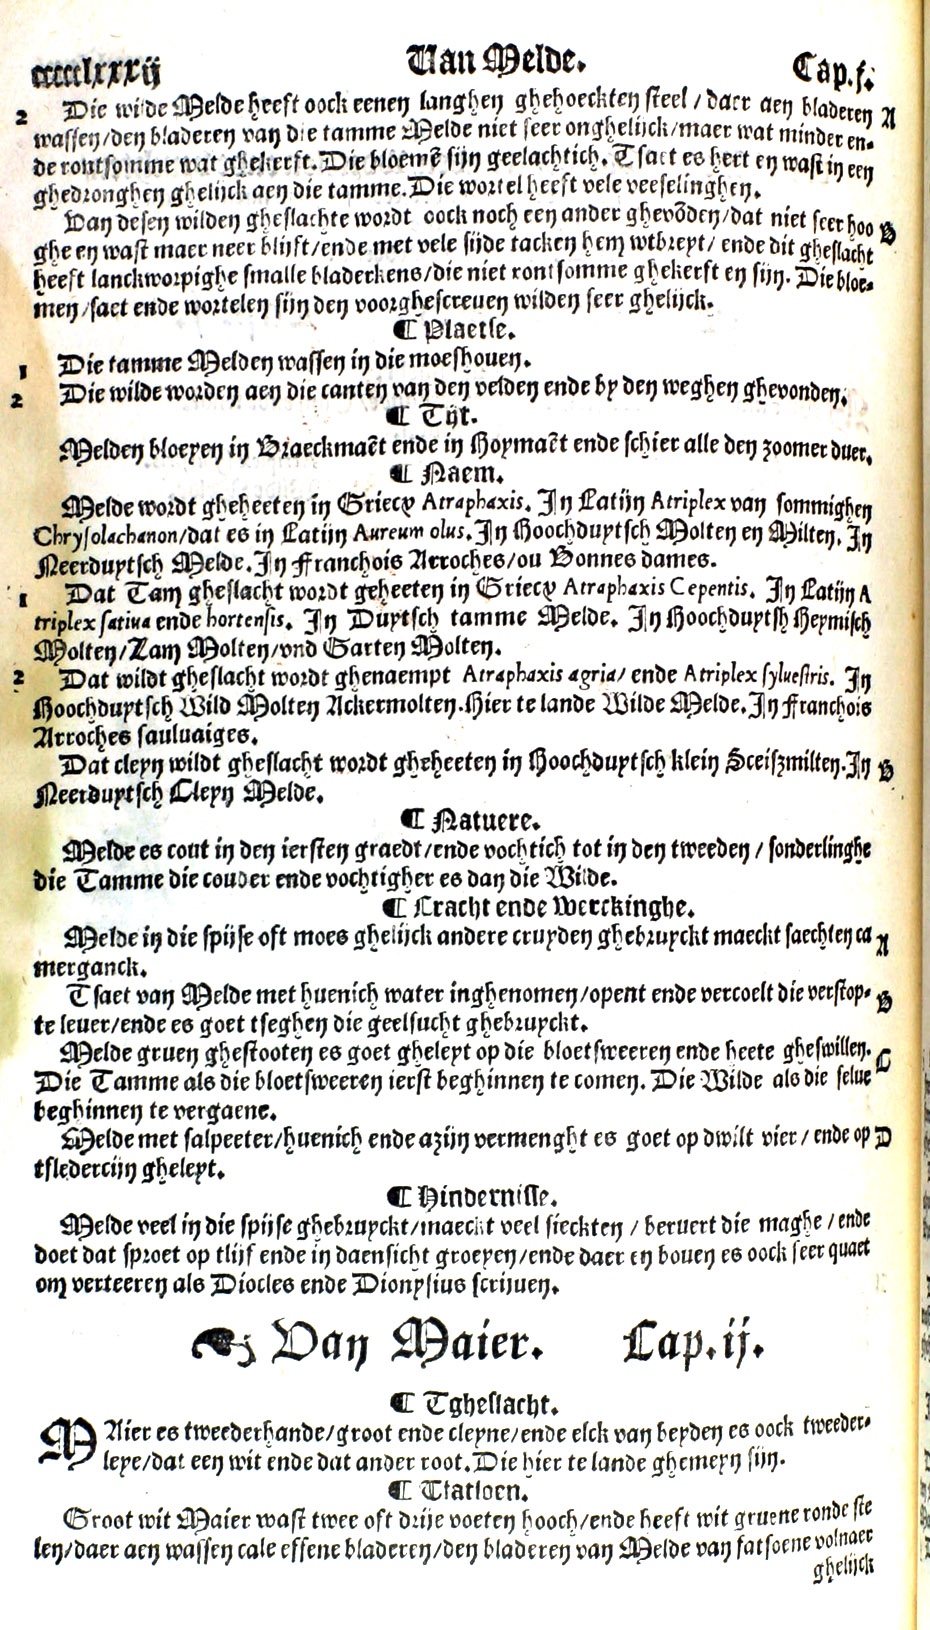 ccccclxxxij Van Melde. Cap.j.
2 Die wilde Melde heeft oock eenen langhen ghehoeckten steel / daer aen bladeren A
wassen/den bladeren van die tamme Melde niet seer onghelijck/maer wat minder en-
de rontsomme wat ghekerft. Die bloemē sijn geelachtich. Tsaet es hert en wast in een
ghedronghen ghelijck aen die tamme. Die wortel heeft vele veeselinghen.
Van desen wilden gheslachte wordt oock noch een ander ghevōden/dat niet seer hoo B
ghe en wast maer neer blijft/ende met vele sijde tacken hem wtbreyt/ ende dit gheslacht
heeft lanckworpighe smalle bladerkens/die niet rontsomme ghekerft en sijn. Die bloe-
men/saet ende wortelen sijn den voorghescreuen wilden seer ghelijck.
¶ Plaetse.
1 Die tamme Melden wassen in die moeshouen.
2 Die wilde worden aen die canten van den velden ende by den weghen ghevonden.
¶ Tijt.
Melden bloeyen in Braeckmaēt ende in Hoymaēt ende schier alle den zoomer duer.
¶ Naem.
Melde wordt gheheeten in Griecx Atraphaxis. In Latijn Atriplex van sommighen
Chrysolachanon/dat es in Latijn Aureum olus. In Hoochduytsch Molten en Milten. In
Neerduytsch Melde. In Franchois Arroches/ou Bonnes dames.
1 Dat Tam gheslacht wordt geheeten in Griecx Atraphaxis Cepentis. In Latijn A
triplex satiua ende hortensis. In Duytsch tamme Melde. In Hoochduytsh Heymisch
Molten/Zam Molten/vnd Garten Molten.
2 Dat wildt gheslacht wordt ghenaempt Atraphaxis agria/ ende Atriplex syluestris. In
Hoochduytsch Wild Molten Ackermolten. Hier te lande Wilde Melde. In Franchois
Arroches sauluaiges.
Dat cleyn wildt gheslacht wordt gheheeten in Hoochduytsch klein Sceiszmilten. In B
Neerduytsch Cleyn Melde.
¶ Natuere.
Melde es cout in den iersten graedt/ende vochtich tot in den tweeden / sonderlinghe
die Tamme die couder ende vochtigher es dan die Wilde.
¶ Cracht ende Werckinghe.
Melde in die spijse oft moes ghelijck andere cruyden ghebruyckt maeckt saechten ca A
merganck.
Tsaet van Melde met huenich water inghenomen/opent ende vercoelt die verstop- B
te leuer/ende es goet tseghen die geelsucht ghebruyckt.
Melde gruen ghestooten es goet gheleyt op die bloetsweeren ende heete gheswillen. C
Die Tamme als die bloetsweeren ierst beghinnen te comen. Die Wilde als die selue
beghinnen te vergaene.
Melde met salpeeter/huenich ende azijn vermenght es goet op dwilt vier / ende op D
tfledercijn gheleyt.
¶ Hindernisse.
Melde veel in die spijse ghebruyckt/maeckt veel sieckten / beruert die maghe / ende
doet dat sproet op tlijf ende in daensicht groeyen/ende daer en bouen es oock seer quaet
om verteeren als Diocles ende Dionysius scrijuen.
Van Maier. Cap.ij.
¶ Tgheslacht.
MAier es tweederhande/groot ende cleyne/ende elck van beyden es oock tweeder-
leye/dat een wit ende dat ander root. Die hier te lande ghemeyn sijn.
¶ Tfatsoen.
Groot wit Maier wast twee oft drije voeten hooch/ende heeft wit gruene ronde ste
len/daer aen wassen cale effene bladeren/den bladeren van Melde van fatsoene volnaer
ghelijck